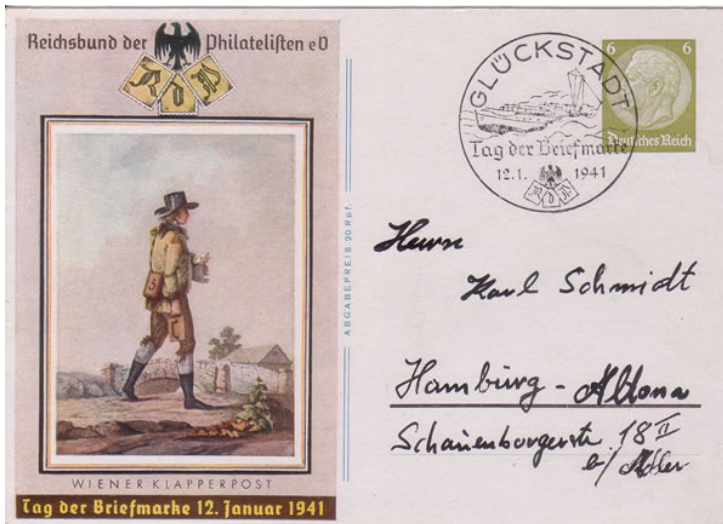 Reichsbund der Philatelisten e V
R d P
WIENER KLAPPERPOST
Tag der Briefmarke 12. Januar 1941
ABGABEPREIS 20 Rpf.
GLÜCKSTADT
Tag der Briefmarke
12.1. 1941
R d P
6 6
Deutsches Reich
Herrn
Karl Schmidt
Hamburg - Altona
Schauenburgerstr. 18 II
b/ Adler